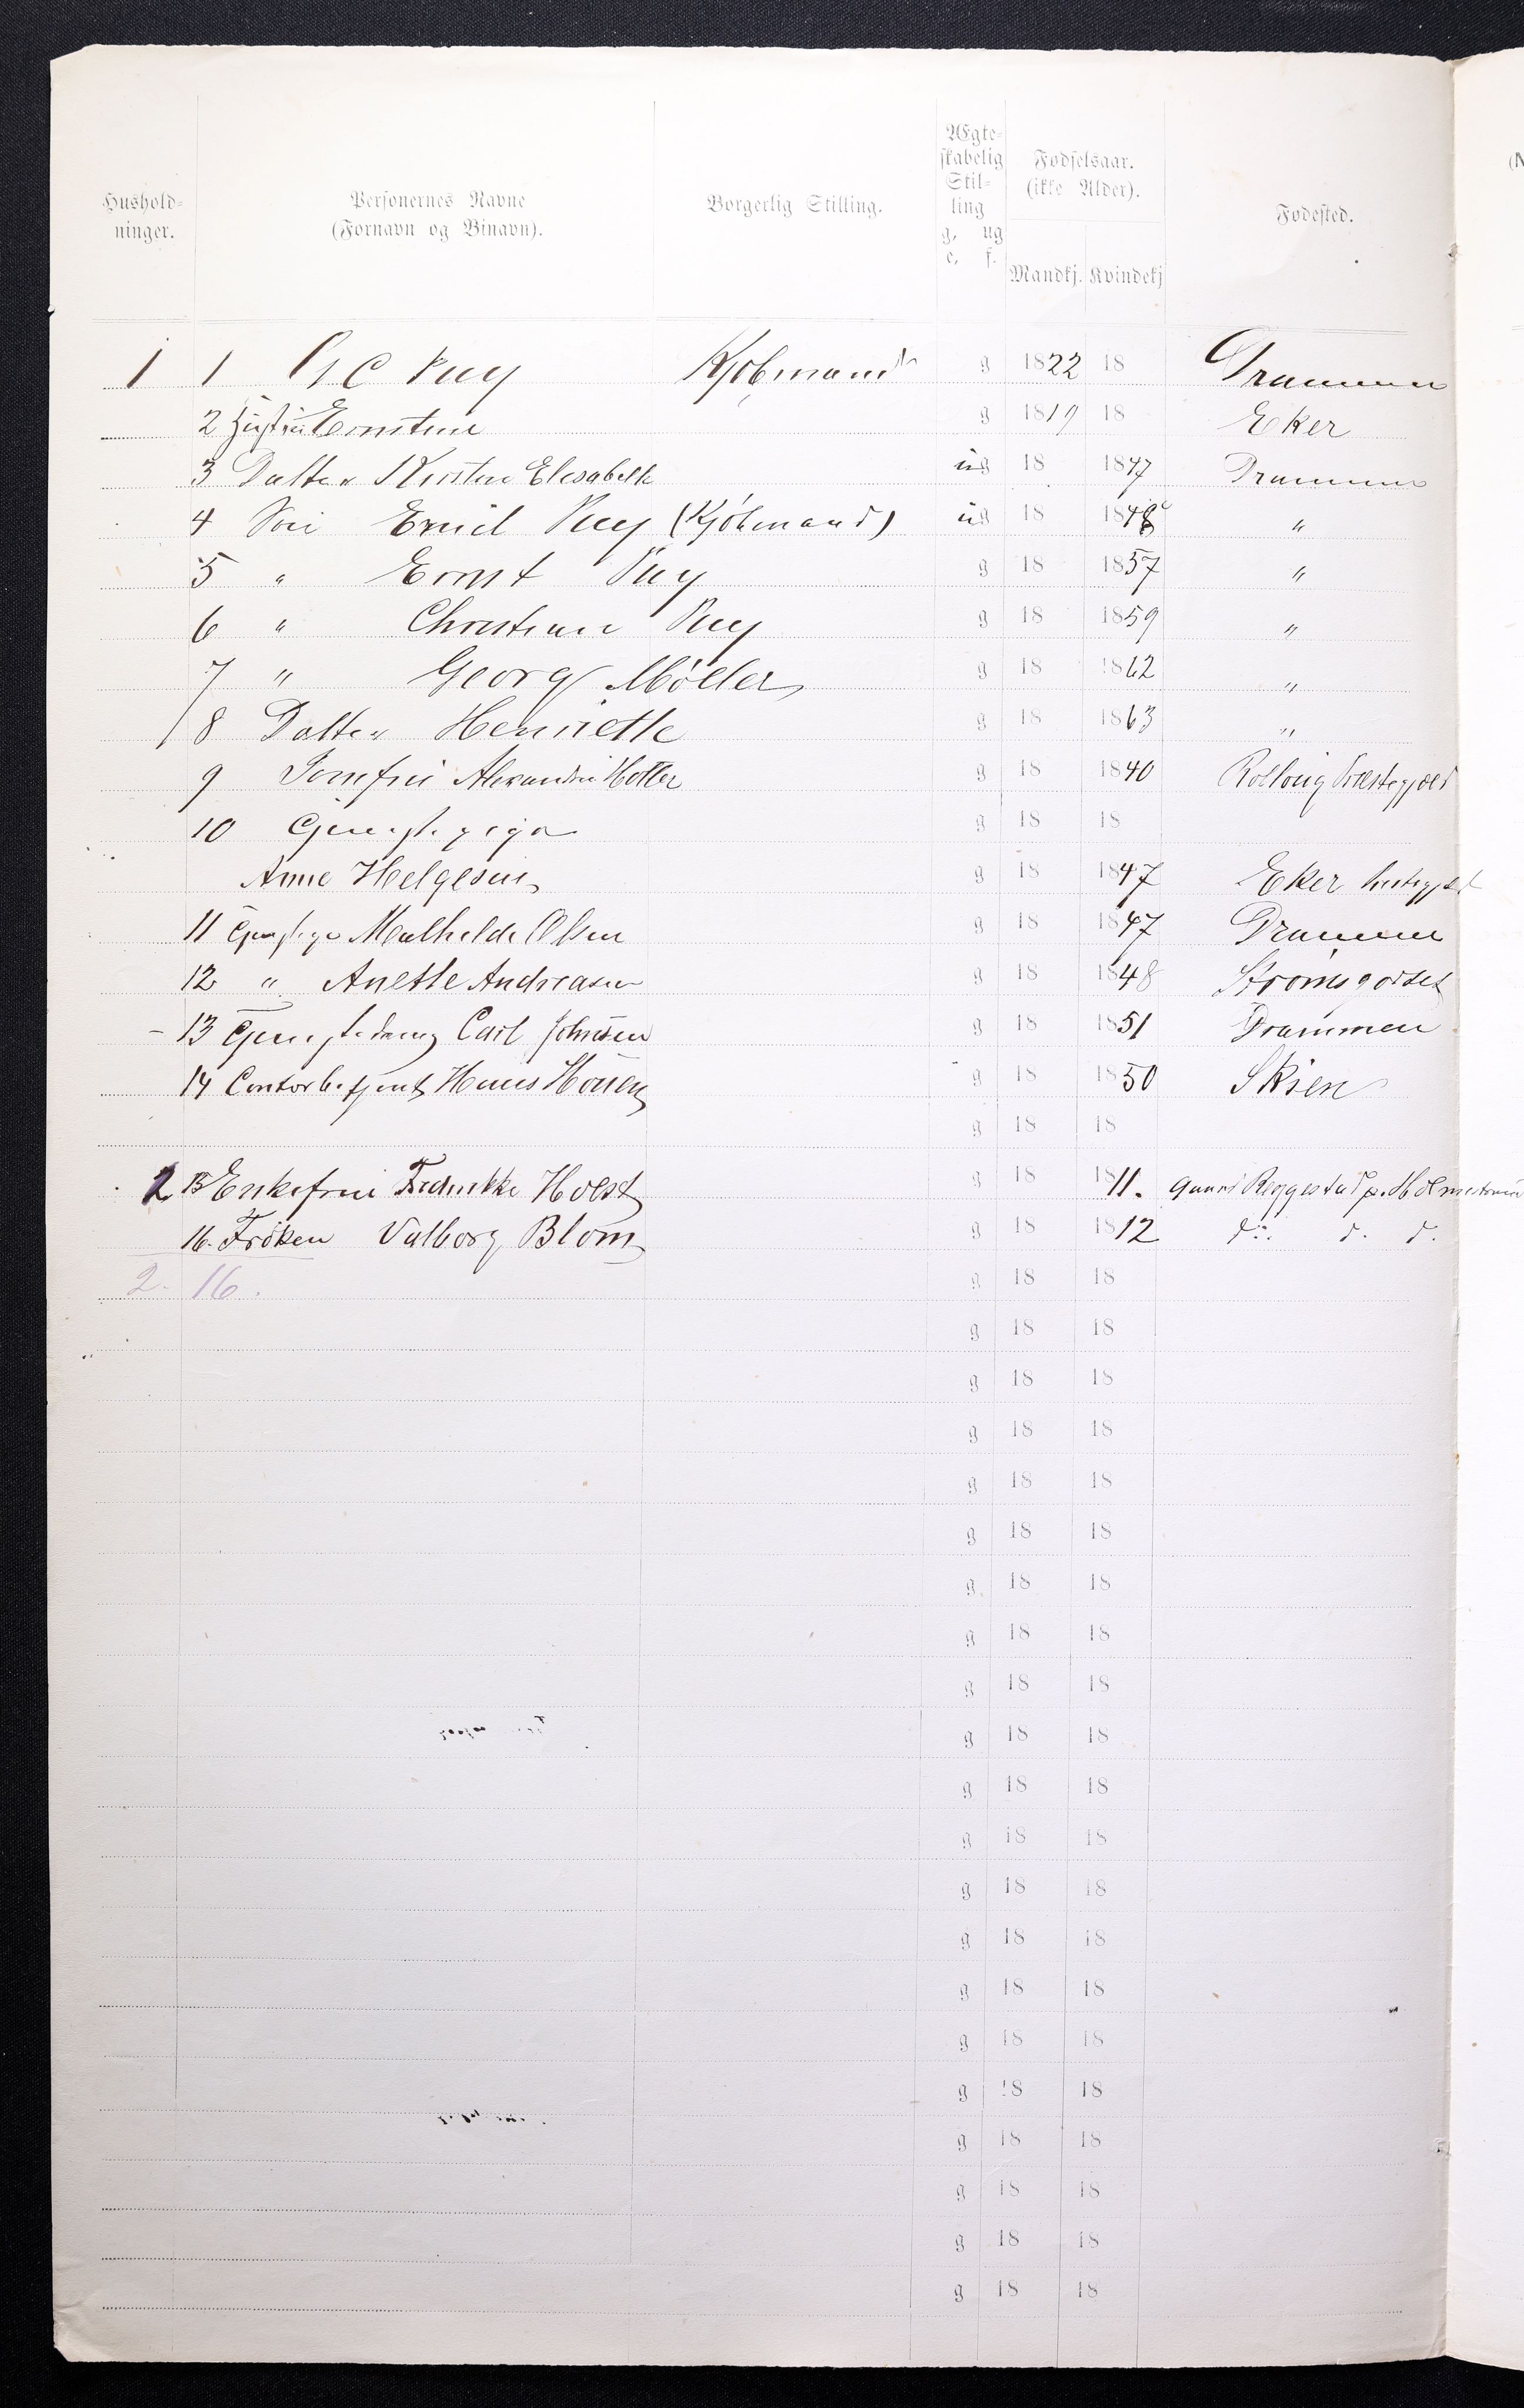 Hushold-
ninger.
Personernes Navne
(Fornavn og Binavn).
Borgerlig Stilling.
Ægte-
skabelig
Stil-
ling
g, ug
e, f.
Fødselsaar.
(ikke Alder).
Mandkj. Kvindekj
Fødested.
1 1 C Kjøbmand g 1822 18 Drammen
2 Hustru Ernstine g 1819 18 Eker
3 Datter Kirstine Elisabeth ug 18 1847 Drammen
4 Søn Emil (Kjøbmand) ug 18 1848 "
5 " Ernst g 18 1857 "
6 " Christian g 18 1859 "
7 " Georg Møller g 18 1862 "
8 Datter Henriette g 18 1863 "
9 Jomfru Alexandra g 18 1840 Rollong Præstegjeld
10 g 18 18
Anne Helgesen g 18 1847 Eker
11 Mathilde Olsen g 18 1847 Drammen
12 " Anette Andreasen g 18 1848 Strømsgodset
13 Carl Johnsen g 18 1851 Drammen
14 Contorbetjent Hans g 18 1850 Skien
g 18 18
2 15 Enkefrue Fredrikke Holst g 18 1811. p. Holmestrand
16. Frøken Valborg Blom g 18 1812 do. d. d.
2. 16. g 18 18
g 18 18
g 18 18
g 18 18
g 18 18
g 18 18
g 18 18
g 18 18
g 18 18
g 18 18
g 18 18
g 18 18
g 18 18
g 18 18
g 18 18
g 18 18
g 18 18
g 18 18
g 18 18
g 18 18
g 18 18